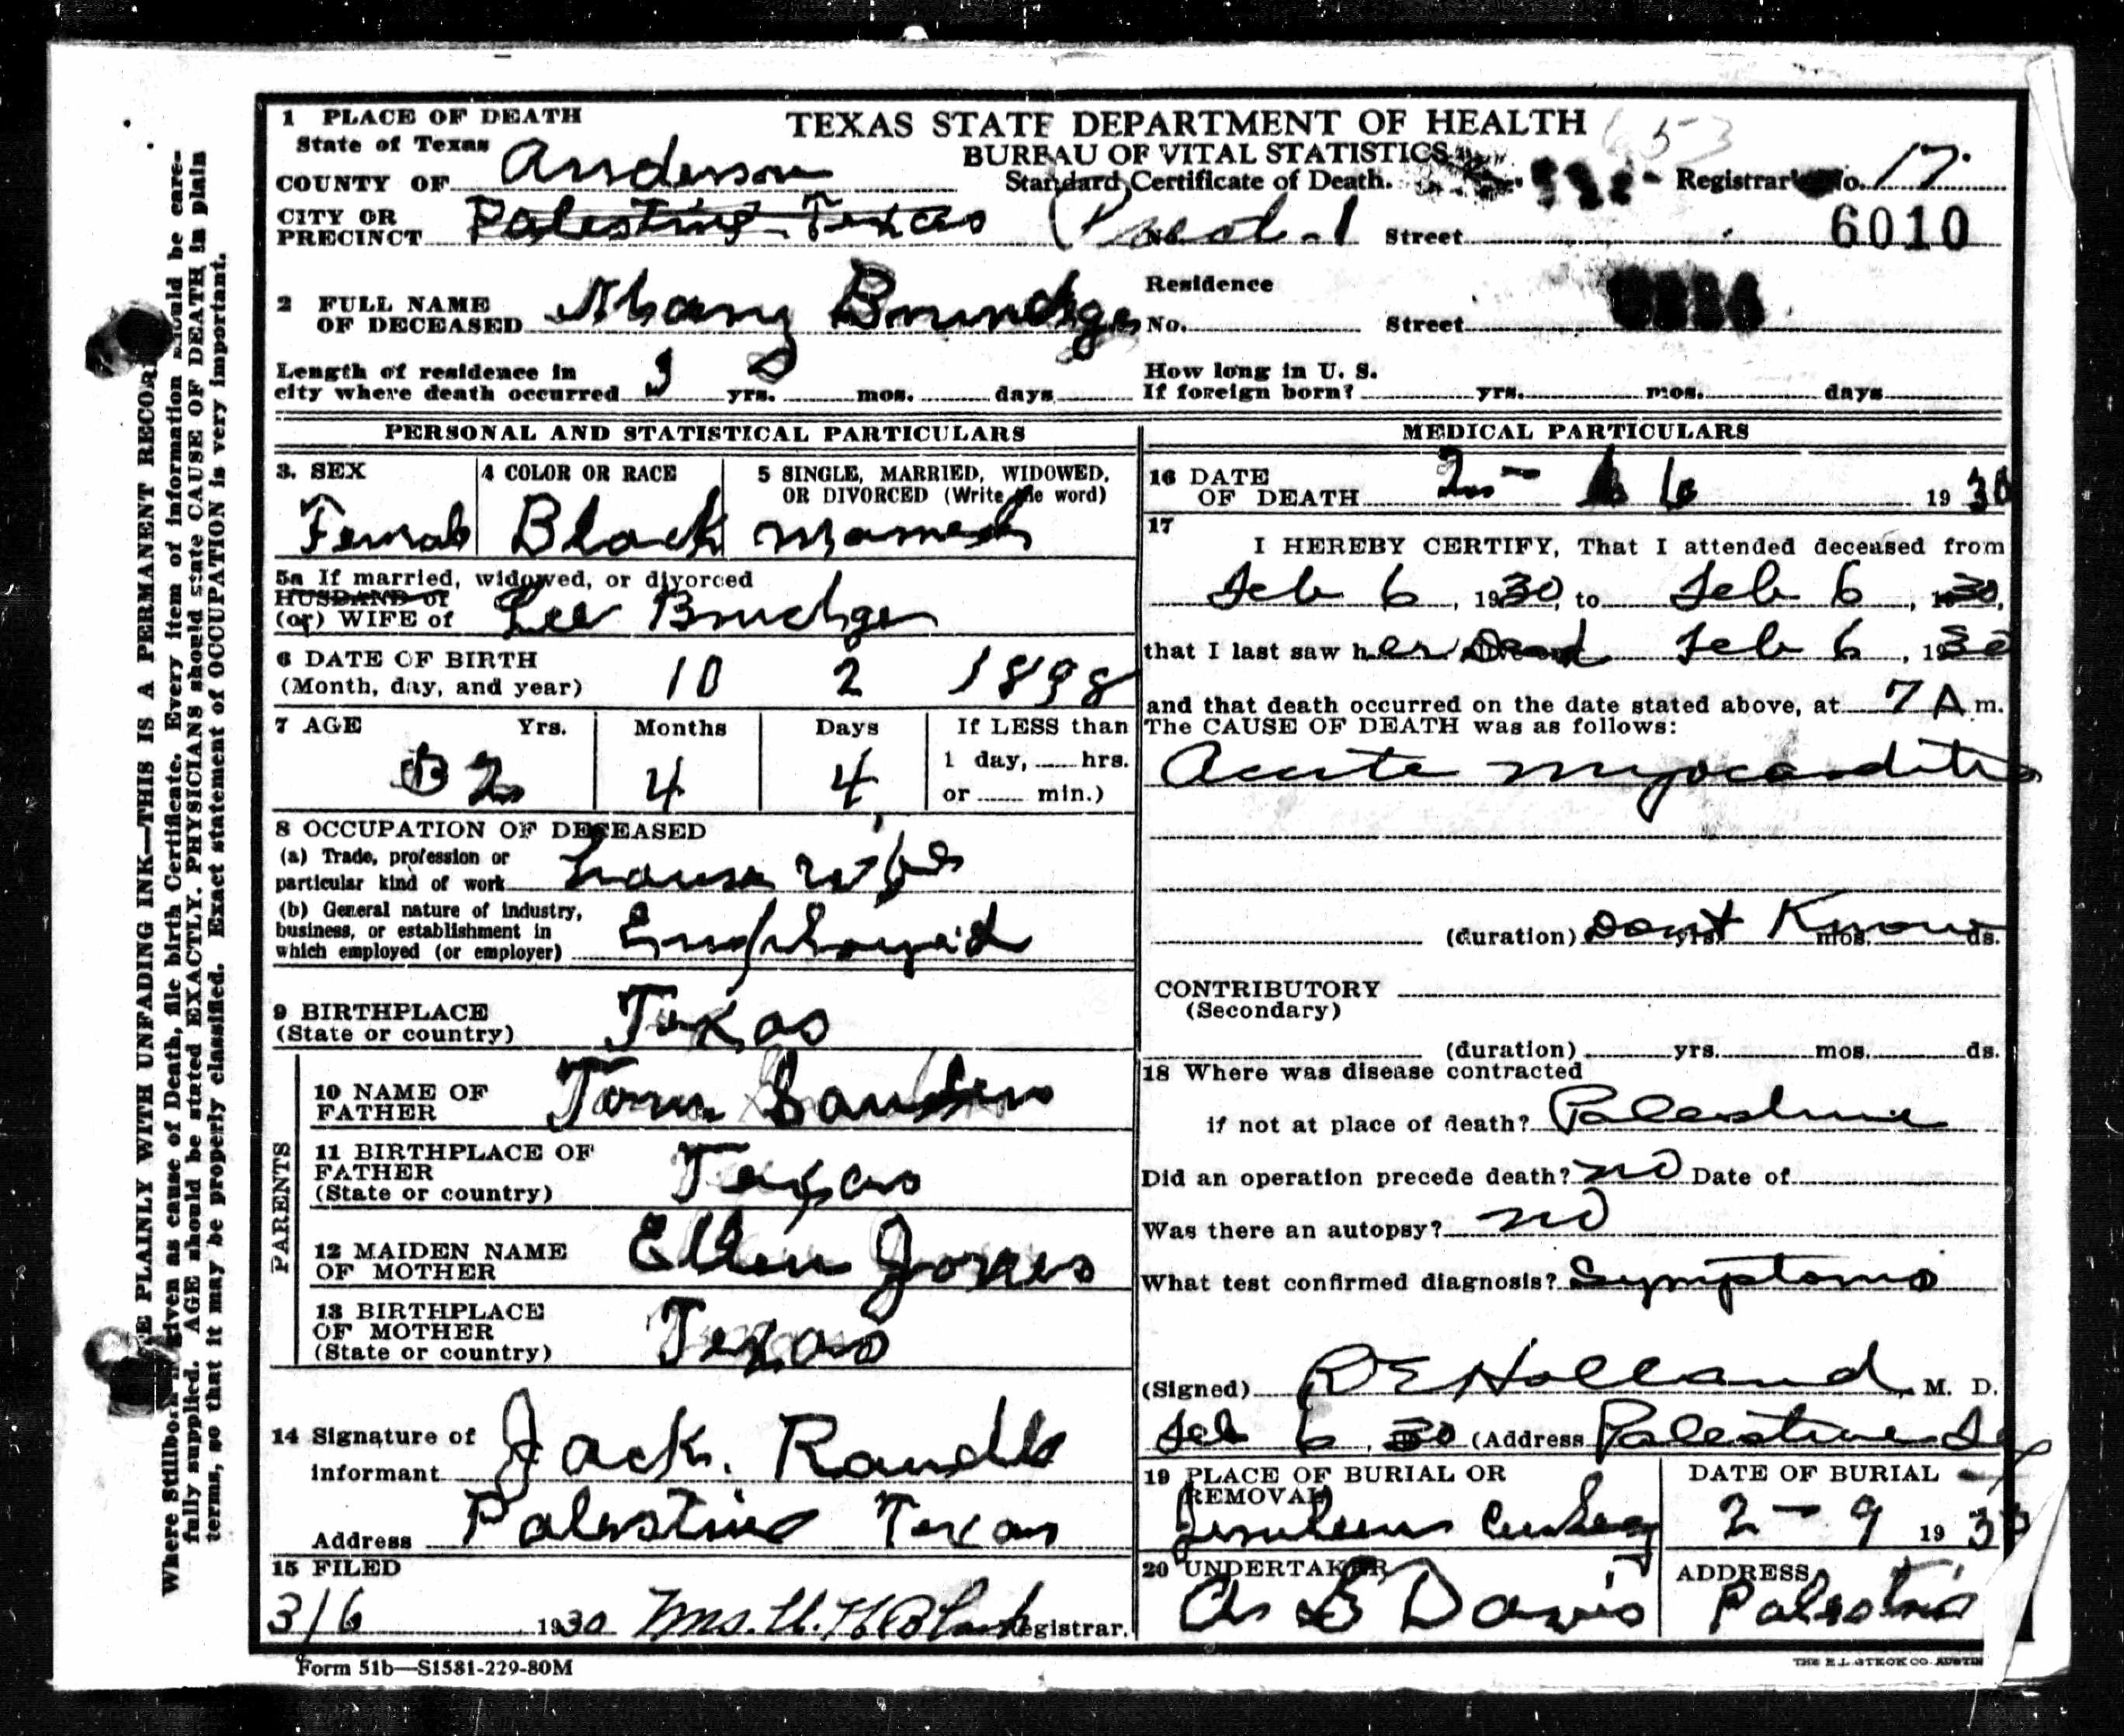 1 PLACE OF DEATH
TEXAS STATE DEPARTMENT OF HEALTH
State of Texas
BUREAU OF VITAL STATISTICS
653
COUNTY OF Anderson
Standard Certificate of Death.
Registrar's No. 17.
CITY OR
PRECINCT Palestine Texas
No. Street
6010
2 FULL NAME
OF DECEASED
Residence
No. Street
Length of residence in
city where death occurred 3 yrs. mos. days
How long in U. S.
If foreign born? yrs. mos. days
PERSONAL AND STATISTICAL PARTICULARS
3. SEX
Female
4 COLOR OR RACE
Black
5 SINGLE, MARRIED, WIDOWED,
OR DIVORCED (Write the word)
Married
5a If married, widowed, or divorced
HUSBAND of
(or) WIFE of Lee
6 DATE OF BIRTH
(Month, day, and year) 10 2 1898
7 AGE Yrs. Months Days If LESS than
1 day, hrs.
or min.)
2 4 4
8 OCCUPATION OF DECEASED
(a) Trade, profession or
particular kind of work house wife
(b) General nature of industry,
business, or establishment in
which employed (or employer)
9 BIRTHPLACE
(State or country) Texas
PARENTS
10 NAME OF
FATHER Tom
11 BIRTHPLACE OF
FATHER
(State or country) Texas
12 MAIDEN NAME
OF MOTHER Ellen Jones
13 BIRTHPLACE
OF MOTHER
(State or country) Texas
14 Signature of
informant Jack.
Address Palestine Texas
15 FILED
3/6 1930 Mrs. Registrar.
MEDICAL PARTICULARS
16 DATE
OF DEATH 2- 6 1930
17
I HEREBY CERTIFY, That I attended deceased from
Feb 6, 1930, to Feb 6, 1930,
that I last saw her Dead Feb 6, 1930
and that death occurred on the date stated above, at 7 A m.
The CAUSE OF DEATH was as follows:
Acute myocarditis
(duration) Dont Know yrs. mos. ds.
CONTRIBUTORY
(Secondary)
(duration) yrs. mos. ds.
18 Where was disease contracted
if not at place of death? Palestine
Did an operation precede death? no Date of
Was there an autopsy? no
What test confirmed diagnosis? Symptoms
(Signed) R E Holland M. D.
Feb 6, 30 (Address Palestine Tex
19 PLACE OF BURIAL OR
REMOVAL
DATE OF BURIAL
2-9 1930
20 UNDERTAKER
Davis
ADDRESS
Palestine
Form 51b—S1581-229-80M
THE E.L. STECK CO. AUSTIN
E PLAINLY WITH UNFADING INK—THIS IS A PERMANENT RECORD
Where Stillborn is given as cause of Death, file birth Certificate. Every item of information should be care-
fully supplied. AGE should be stated EXACTLY. PHYSICIANS should state CAUSE OF DEATH in plain
terms, so that it may be properly classified. Exact statement of OCCUPATION is very important.